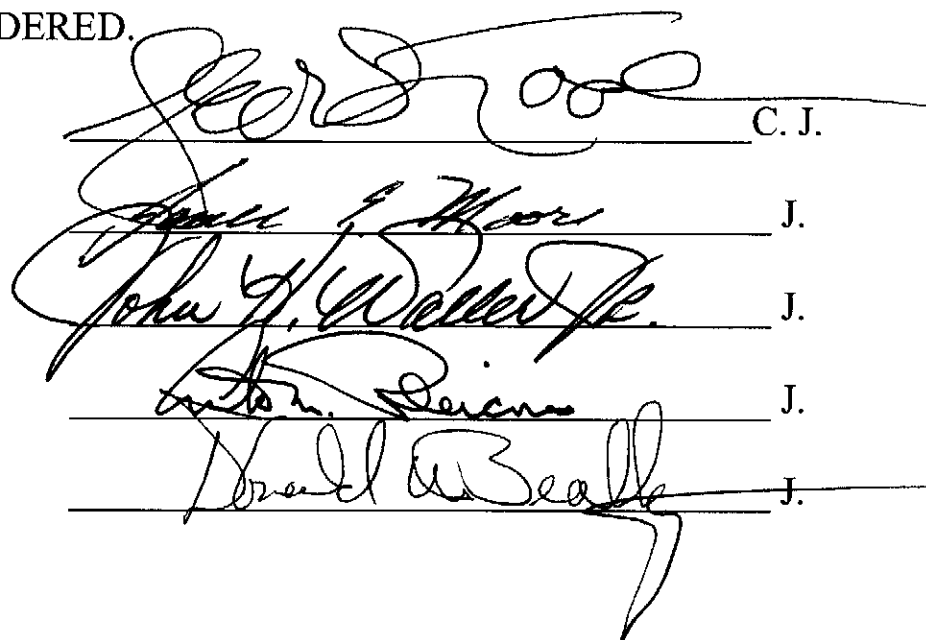 DERED.
C. J.
James E. Moore J.
John H. Waller Jr. J.
J.
Donald W. Beatty J.